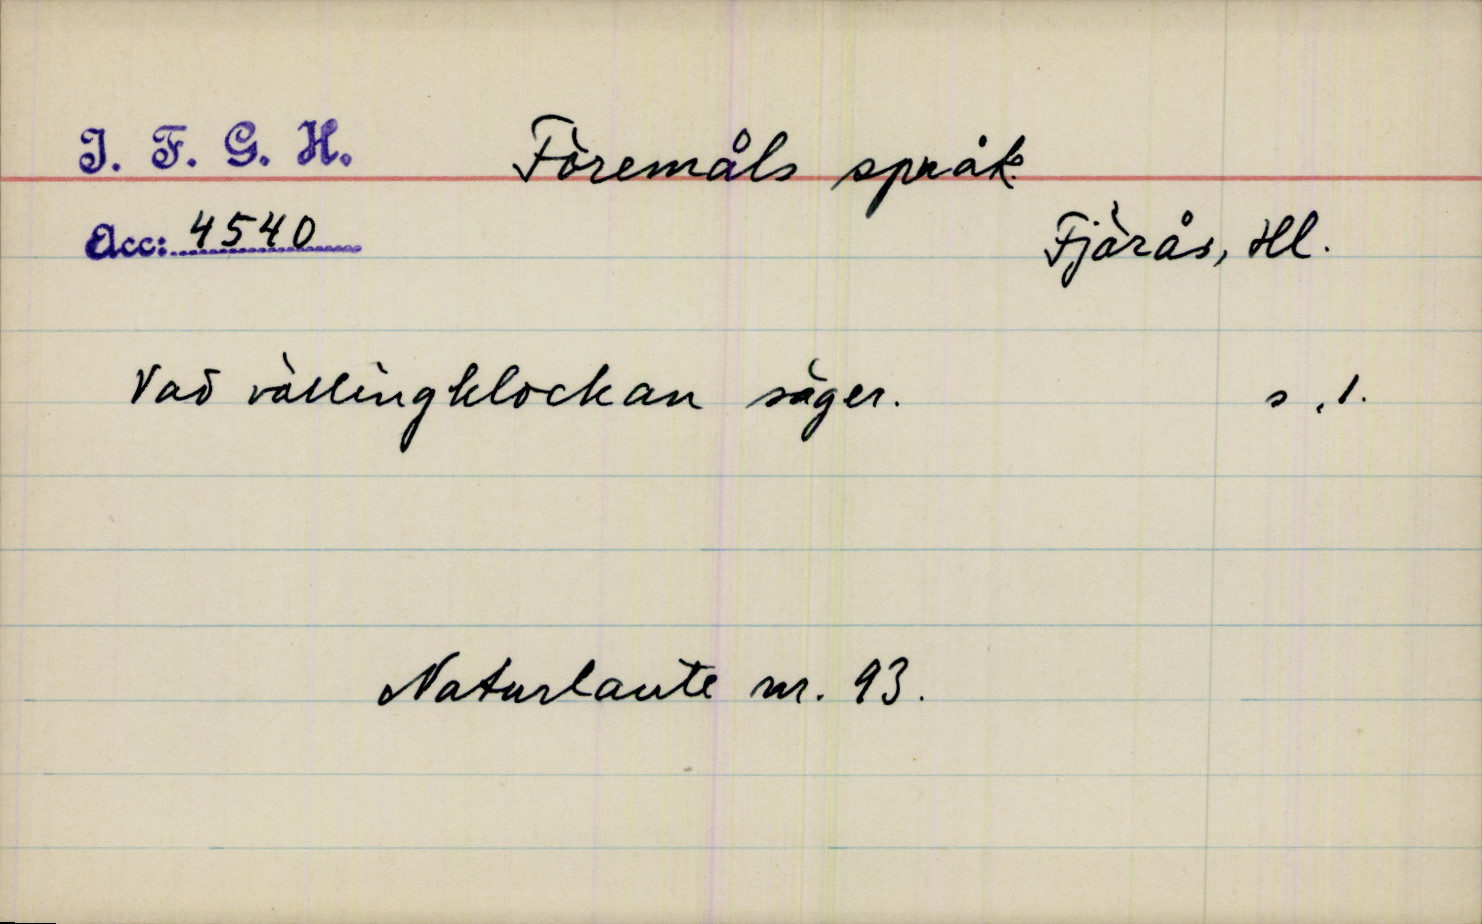 I. F. G. H. Föremåls språk.
Acc: 4540
Fjärås, Hl.
Vad vällingklockan säger. s. 1.
Naturlaute nr. 93.